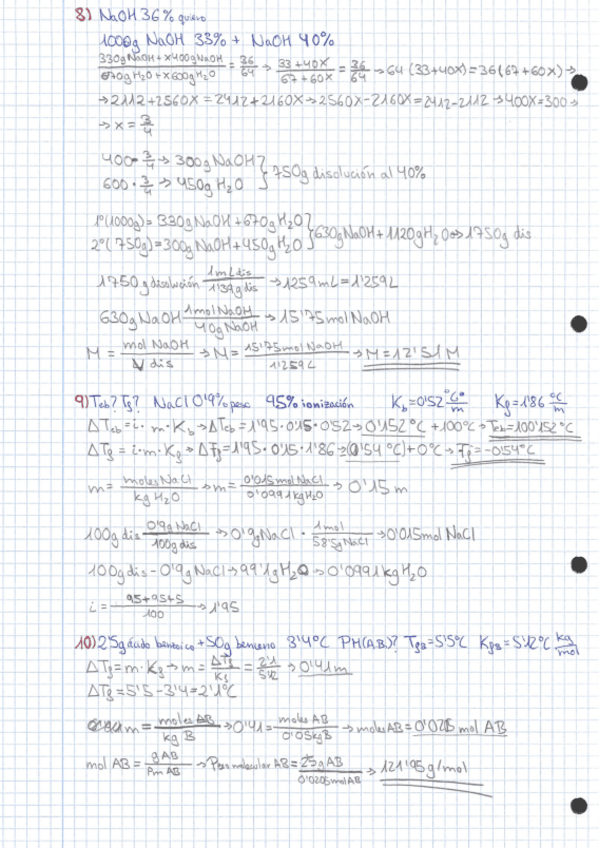 8) NaOH 36% quiero
1000g NaOH 33% + NaOH 40%
330g NaOH + x400g NaOH / 670g H₂O + x600g H₂O = 36/64 → 33+40x / 67+60x = 36/64 → 64 (33+40x) = 36(67+60x) →
→ 2112+2560x = 2412+2160x → 2560x-2160x = 2412-2112 → 400x=300 →
→ x = 3/4
400 · 3/4 → 300g NaOH
600 · 3/4 → 450g H₂O } 750g disolución al 40%
1º(1000g) = 330g NaOH + 670g H₂O
2º(750g) = 300g NaOH + 450g H₂O } 630g NaOH + 1120g H₂O → 1750g dis
1750 g disolución 1mL dis / 1'39g dis → 1259mL = 1'259L
630g NaOH 1mol NaOH / 40g NaOH → 15'75 mol NaOH
M = mol NaOH / V dis → M = 15'75 mol NaOH / 1'259L → M = 12'51 M
9) Teb? Tg? NaCl 0'9% peso 95% ionización Kb = 0'52 ºC/m Kg = 1'86 ºC/m
ΔTeb = i · m · Kb → ΔTeb = 1'95 · 0'15 · 0'52 → 0'152ºC + 100ºC → Teb = 100'152ºC
ΔTg = i · m · Kg → ΔTg = 1'95 · 0'15 · 1'86 → (0'54ºC) + 0ºC → Tg = -0'54ºC
m = moles NaCl / kg H₂O → m = 0'015mol NaCl / 0'0991kg H₂O → 0'15 m
100g dis 0'9g NaCl / 100g dis → 0'9g NaCl · 1mol / 58'5g NaCl → 0'015mol NaCl
100g dis - 0'9g NaCl → 99'1g H₂O → 0'0991 kg H₂O
i = 95+95+5 / 100 → 1'95
10) 2'5g ácido benzoico + 50g benceno 3'4ºC PM(AB)? TgB = 5'5ºC KgB = 5'12ºC kg/mol
ΔTg = m · Kg → m = ΔTg / Kg = 2'1 / 5'12 → 0'41m
ΔTg = 5'5 - 3'4 = 2'1ºC
m = moles AB / kg B → 0'41 = moles AB / 0'05kg B → moles AB = 0'0205 mol AB
mol AB = g AB / Pm AB → Peso molecular AB = 2'5g AB / 0'0205mol AB → 121'95 g/mol